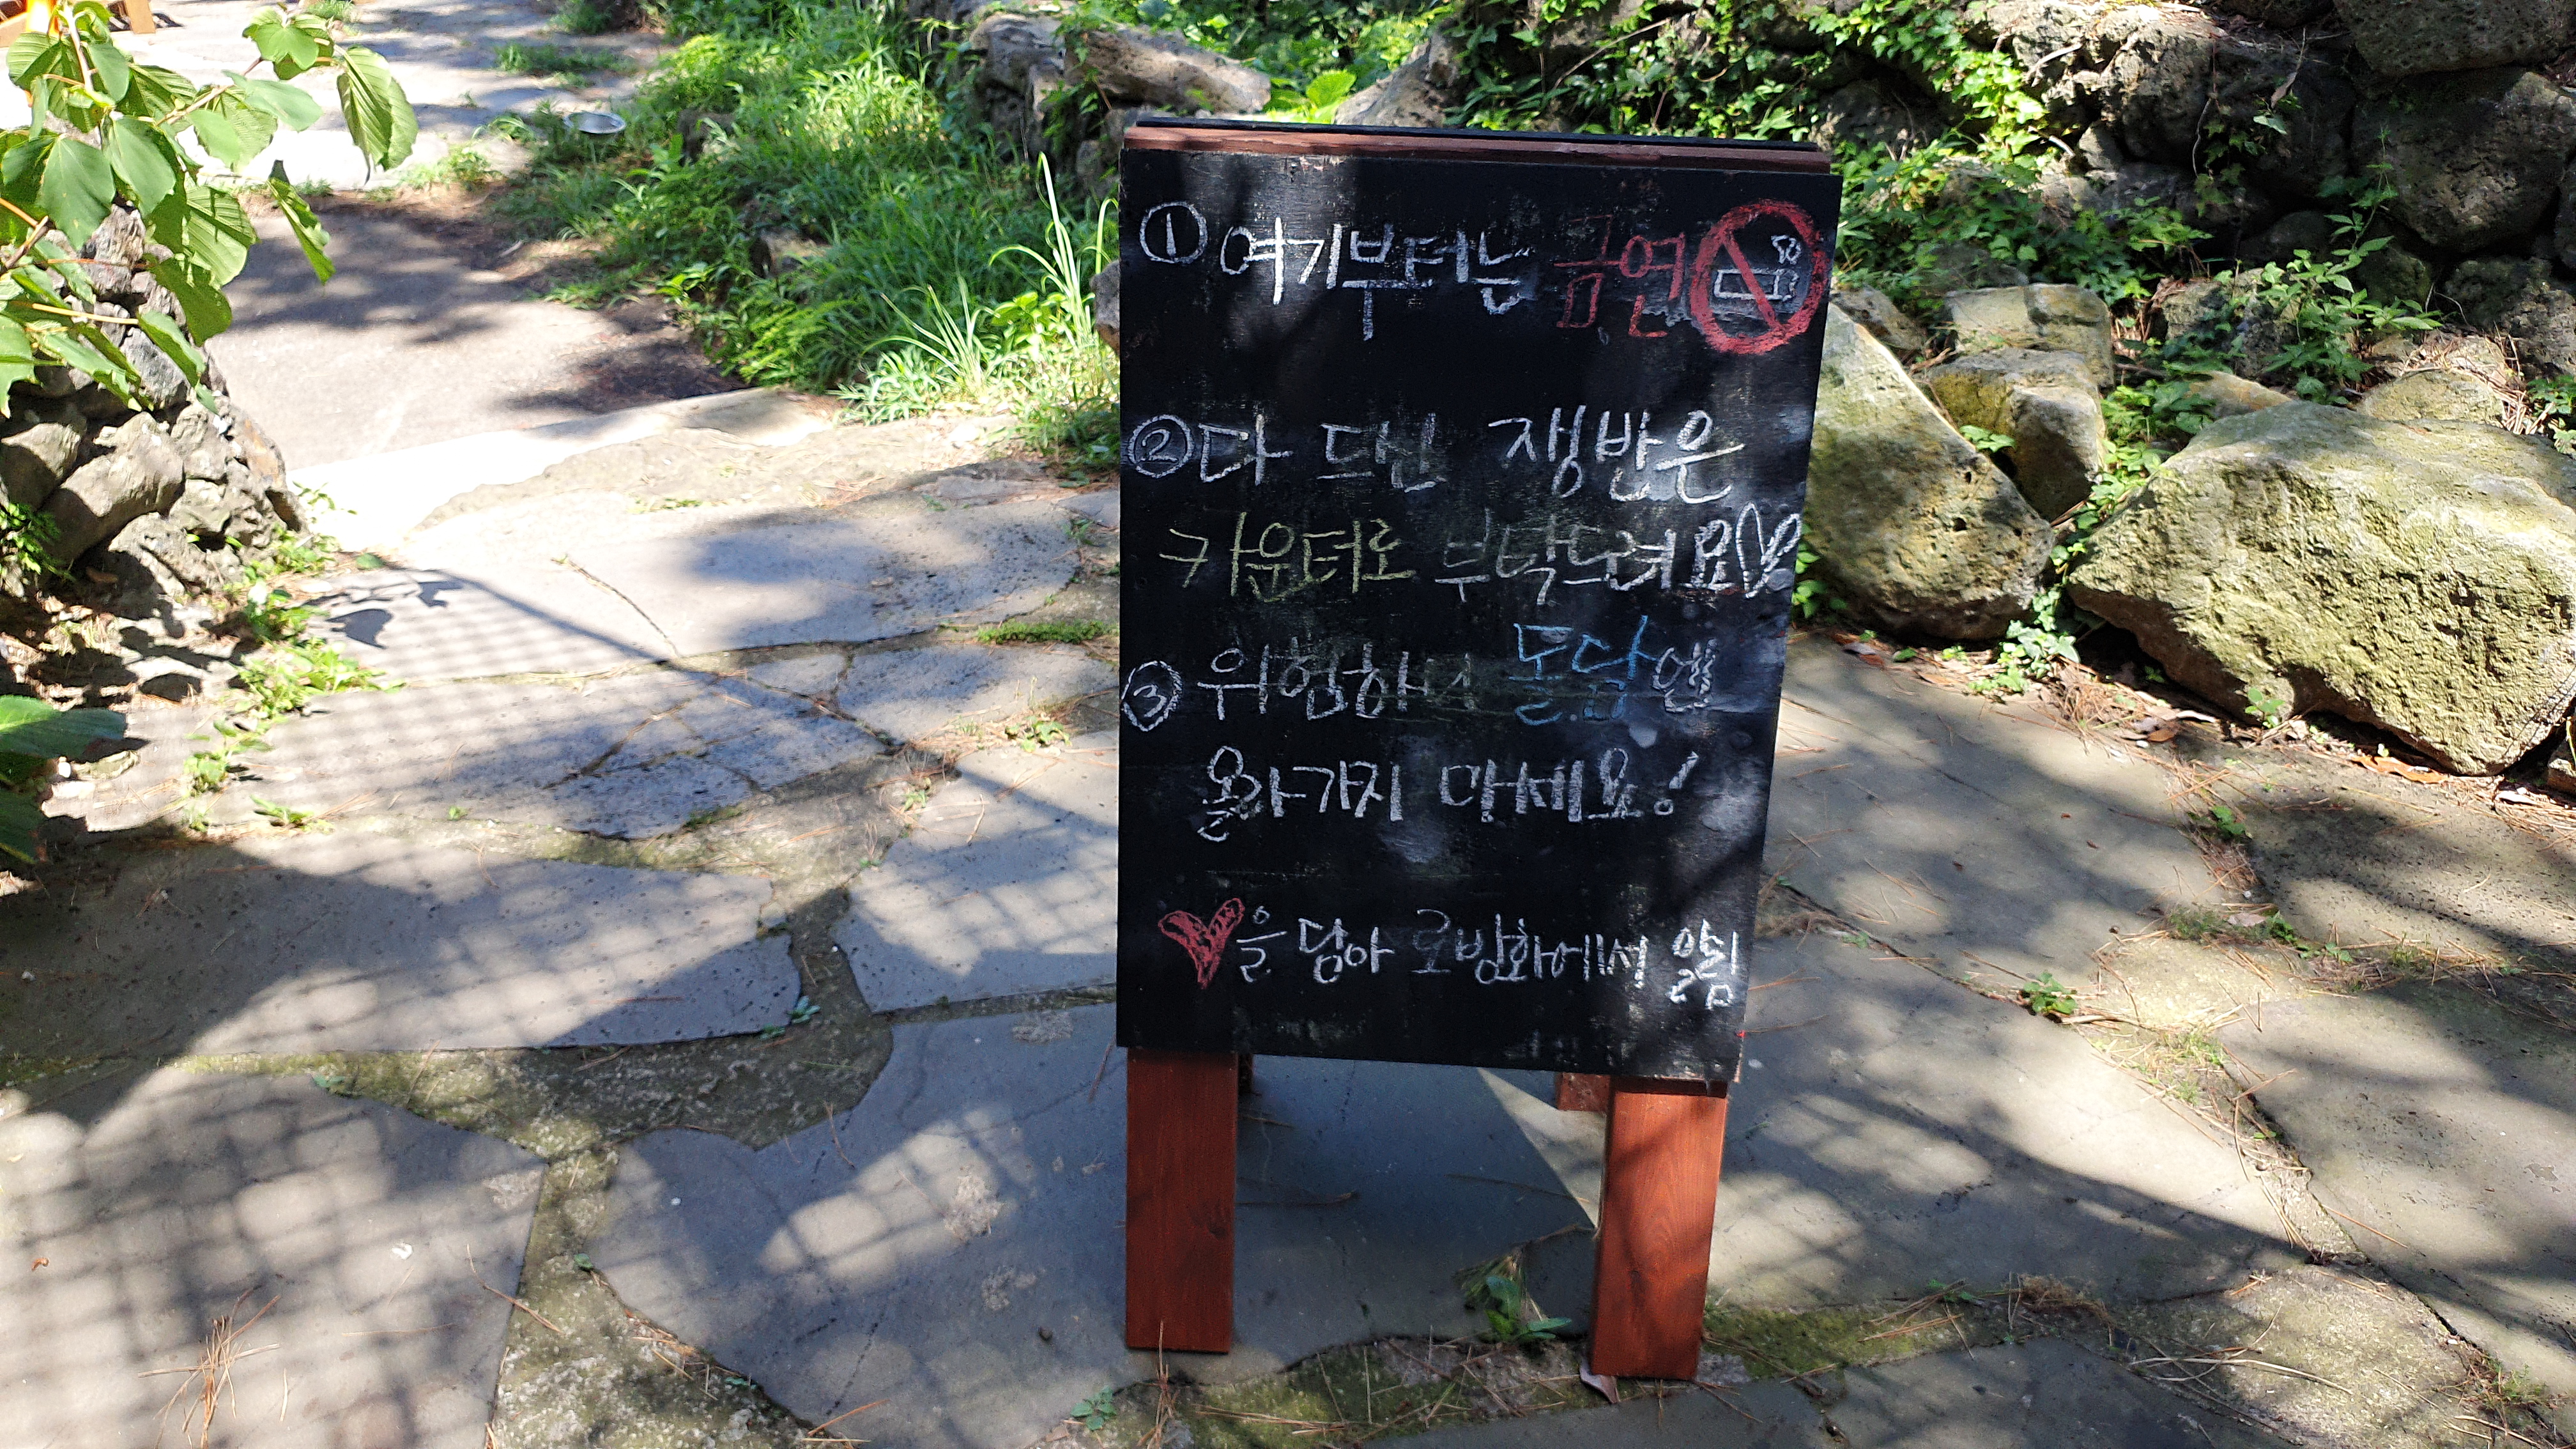 ① 여기부터는 금연
② 다 드신 쟁반은
카운터로 부탁드려요♡
③ 위험하니 돌담엔
올라가지 마세요!
♥을 담아 로방화에서 알림